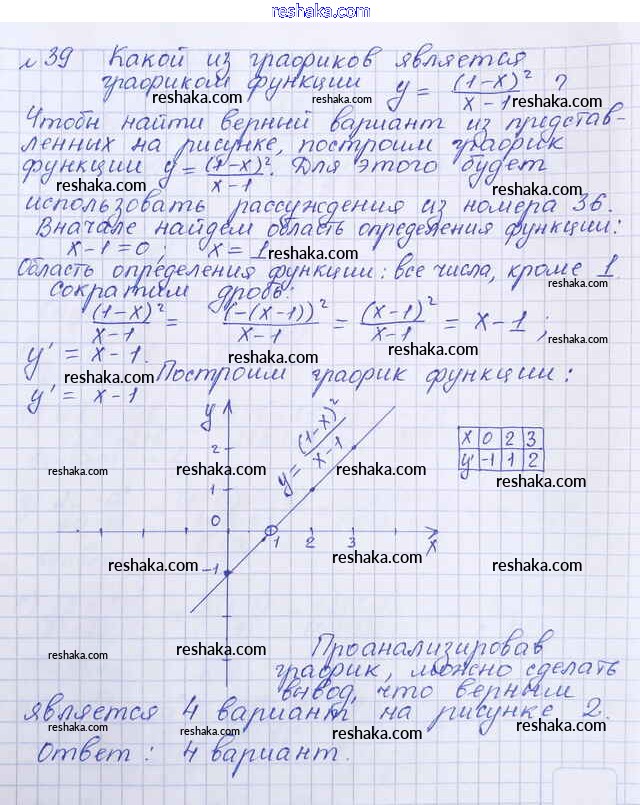 www.reshaka.com
№39 Какой из графиков является
графиком функции y = (1-x)²/(x-1) ?
reshaka.com reshaka.com
Чтобы найти верный вариант из представ-
ленных на рисунке, построим график
функции y = (1-x)²/(x-1). Для этого будет
reshaka.com reshaka.com
использовать рассуждения из номера 36.
Вначале найдем область определения функции:
x-1=0; x=1
reshaka.com
Область определения функции: все числа, кроме 1
reshaka.com
сократим дробь:
(1-x)²/(x-1) = (-(x-1))²/(x-1) = (x-1)²/(x-1) = x-1;
reshaka.com reshaka.com reshaka.com
y' = x-1.
reshaka.com reshaka.com
Построим график функции:
y' = x-1
y
y = (1-x)²/(x-1)
x 0 2 3
y' -1 1 2
2
reshaka.com reshaka.com reshaka.com
1
0
1 2 3 x
reshaka.com reshaka.com reshaka.com
-1
Проанализировав
reshaka.com reshaka.com reshaka.com
график, можно сделать
вывод, что верным
является 4 вариант на рисунке 2.
reshaka.com reshaka.com reshaka.com
Ответ: 4 вариант.